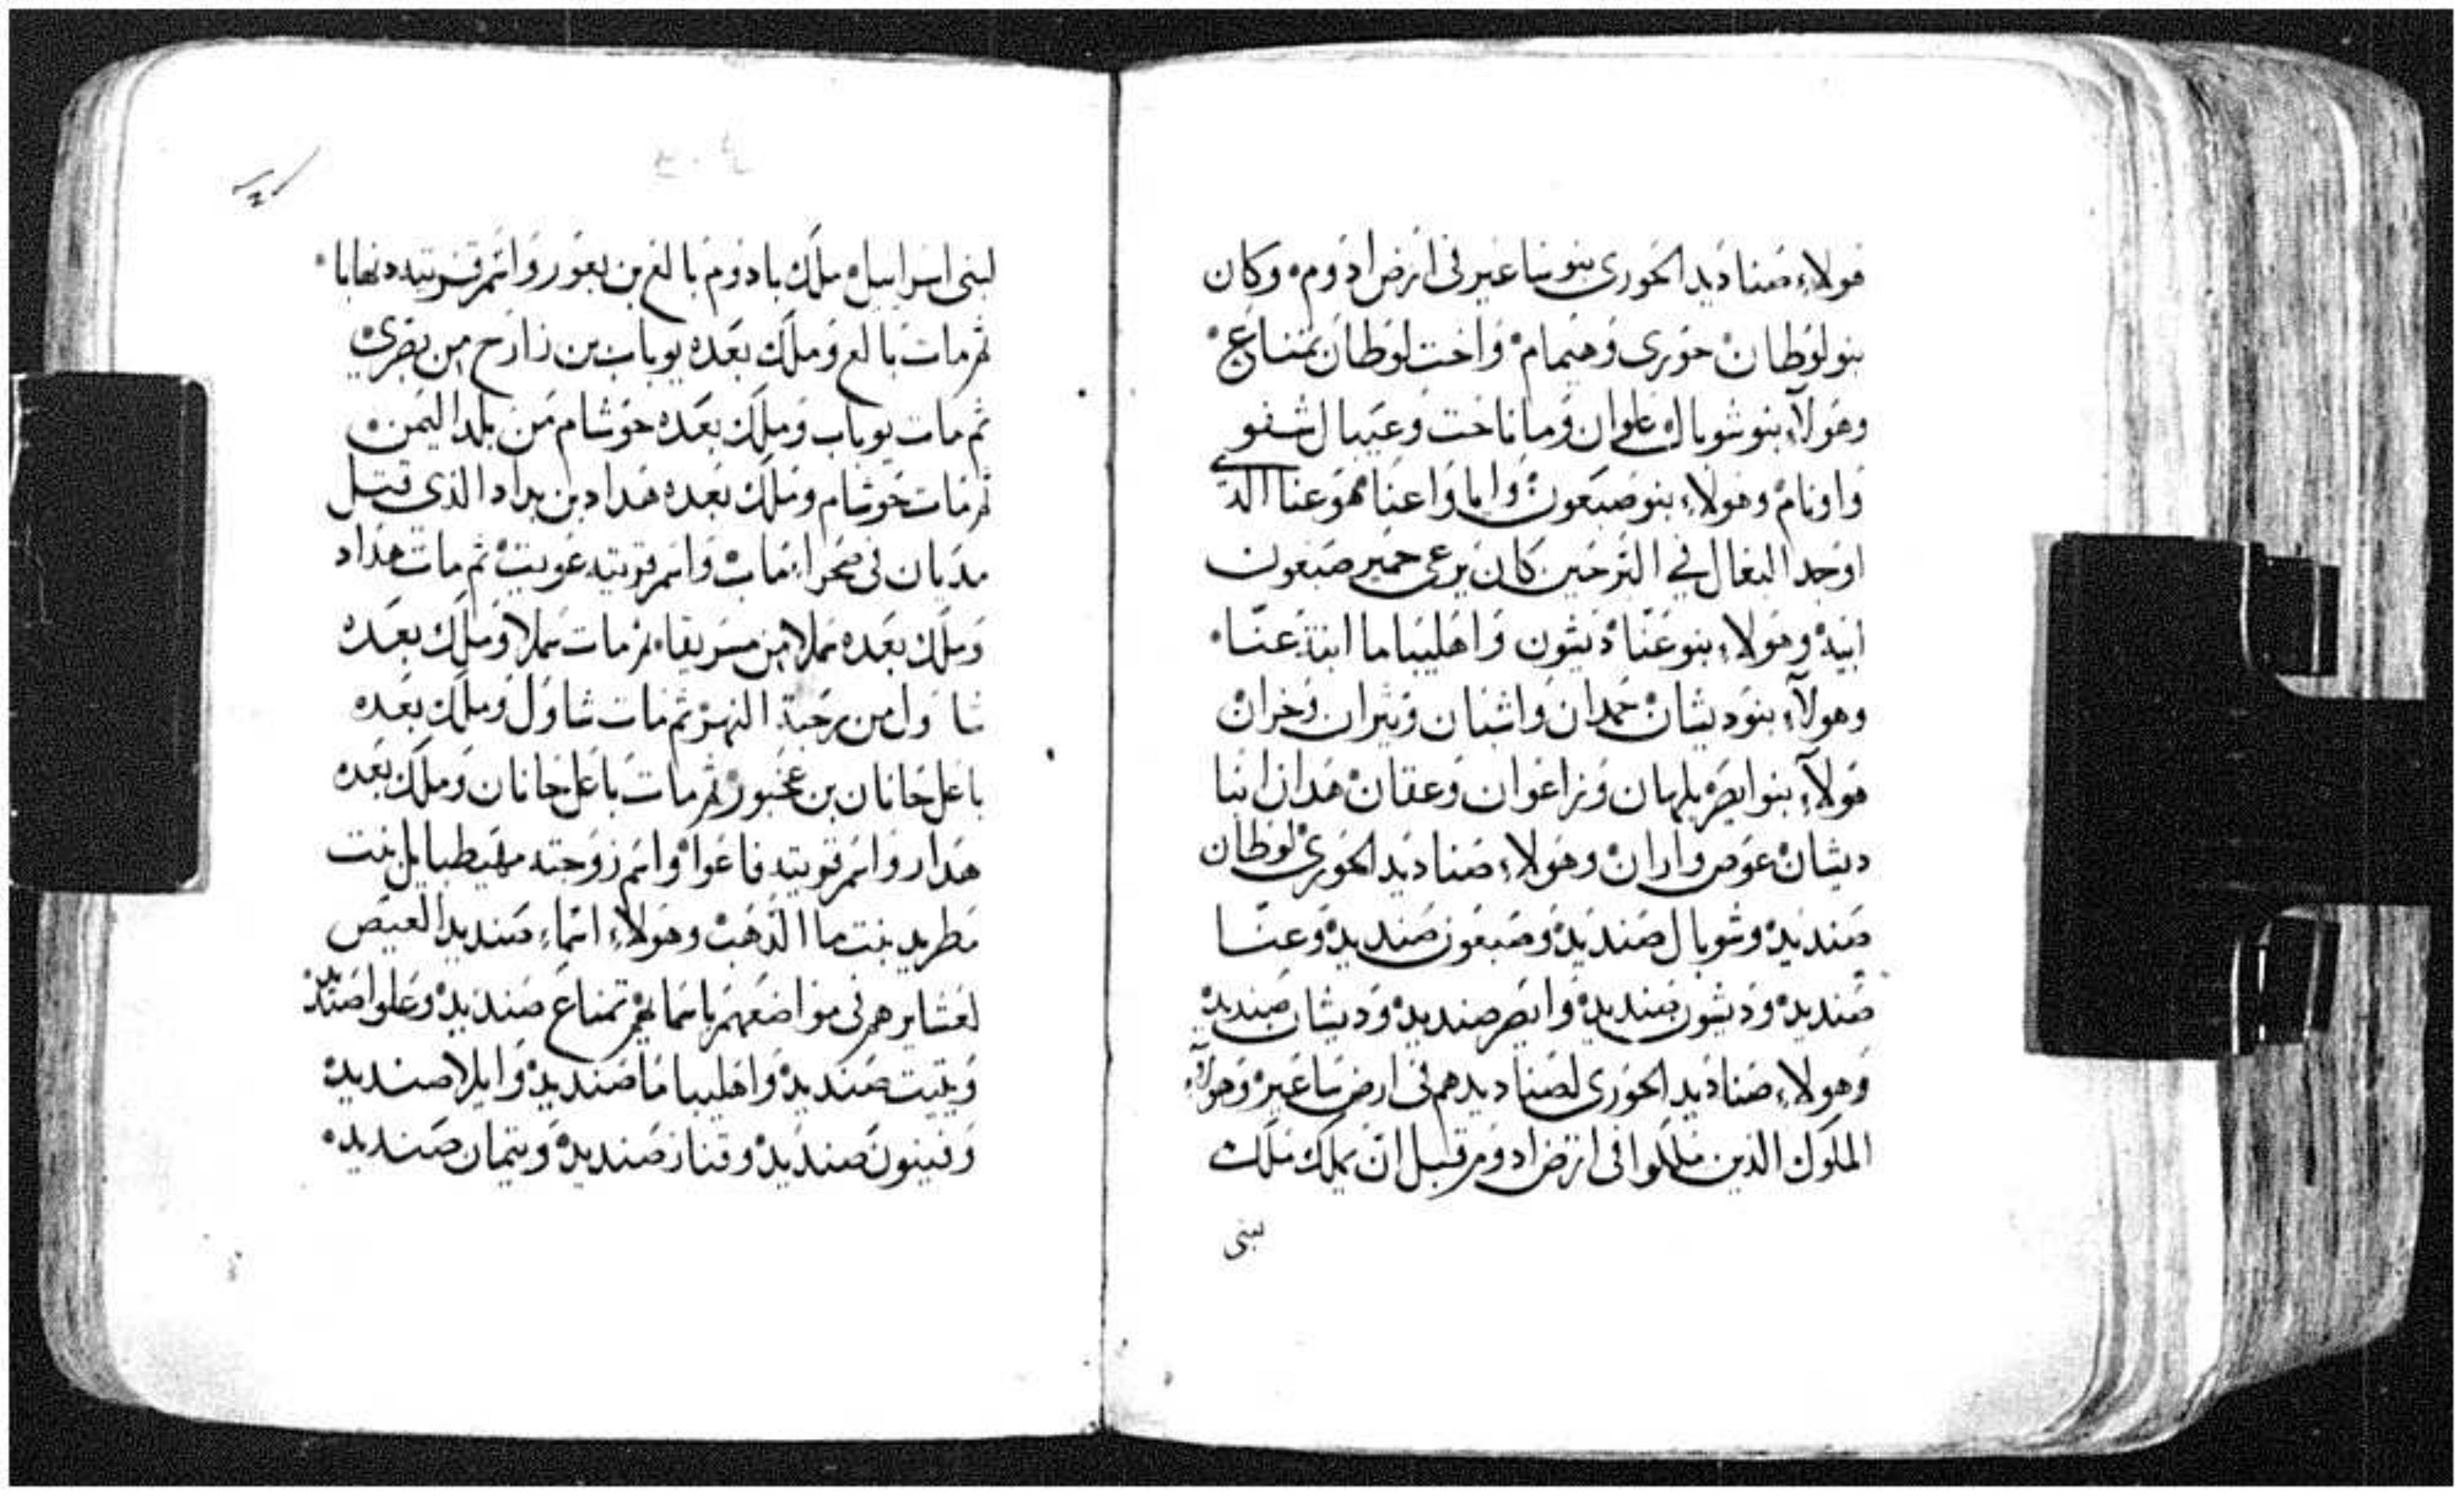 هولاء صناديد الحوري بنو ساعير في ارض ادوم وكان
بنو لوطان حوري وهيمام واخت لوطان تمناع
وهولاء بنو شوبال علوان وماناخت وعيبال شفو
واونام وهولاء بنو صبعون وايا واعنا هو عنا الذي
اوجد البغال في البر حين كان يرعى حمير صبعون
ابيه وهولاء بنو عنا ديشون واهليباما ابنة عنا
وهولاء بنو ديشان حمدان واشبان ويثران وخران
هولاء بنو ايصر بلهان وزاعوان وعقان هذان ابنا
ديشان عوص واران وهولاء صناديد الحوري لوطان
صنديد وشوبال صنديد وصبعون صنديد وعنا
صنديد وديشون صنديد وايصر صنديد وديشان صنديد
وهولاء صناديد الحوري لصناديدهم في ارض ساعير وهولاء
الملوك الذين ملكوا في ارض ادوم قبل ان يملك ملك
لبني
لبني اسراييل ملك بادوم بالع بن بعور واسم قريته دنهابا
ثم مات بالع وملك بعده يوباب بن زارح من بصرى
ثم مات يوباب وملك بعده حوشام من بلد اليمن
ثم مات حوشام وملك بعده هداد بن بداد الذي قتل
مديان في صحراء ماب واسم قريته عويت ثم مات هداد
وملك بعده سملا من مسريقا ثم مات سملا وملك بعده
شاول من رحبة النهر ثم مات شاول وملك بعده
باعل حانان بن عخبور ثم مات باعل حانان وملك بعده
هدار واسم قريته فاعوا واسم زوجته مهيطبايل بنت
مطريد بنت ما الذهب وهولاء اسماء صنديد العيص
لعشايرهم في مواضعهم باسمايهم تمناع صنديد وعلوا صنديد
ويتيت صنديد واهليباما صنديد وايلا صنديد
وفينون صنديد وقناز صنديد وتيمان صنديد